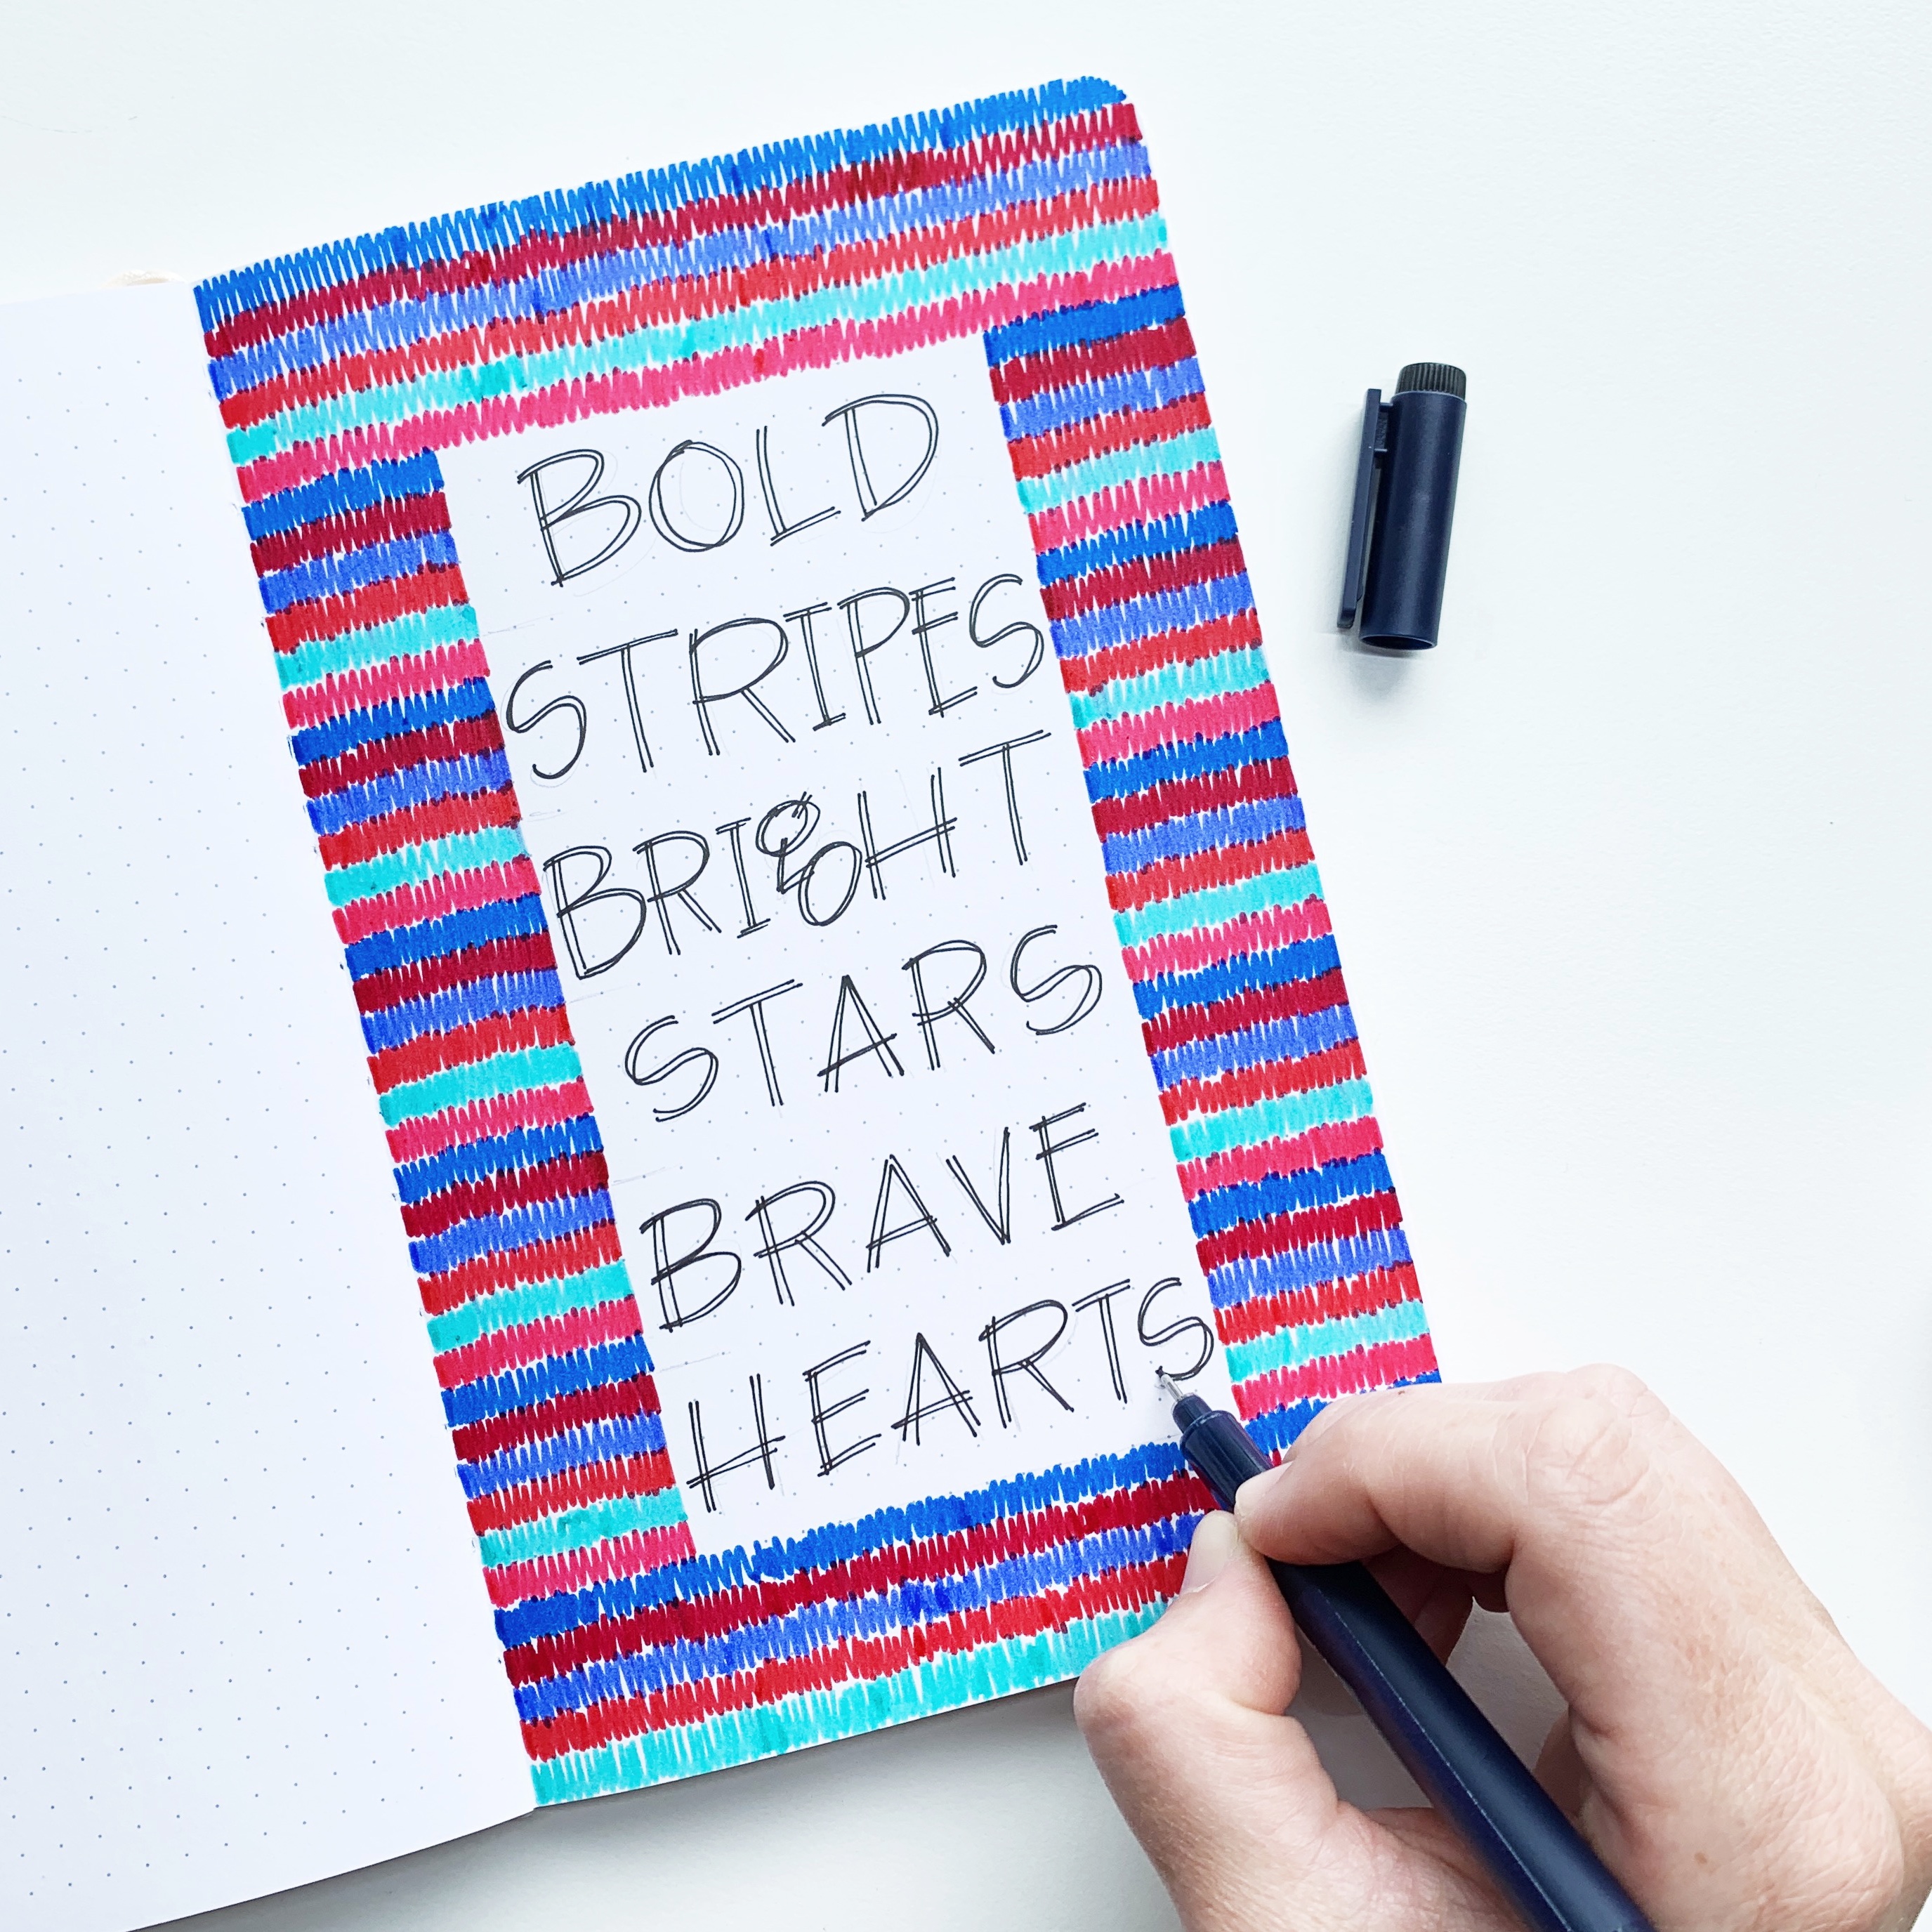 BOLD
STRIPES
BRIGHT
STARS
BRAVE
HEARTS